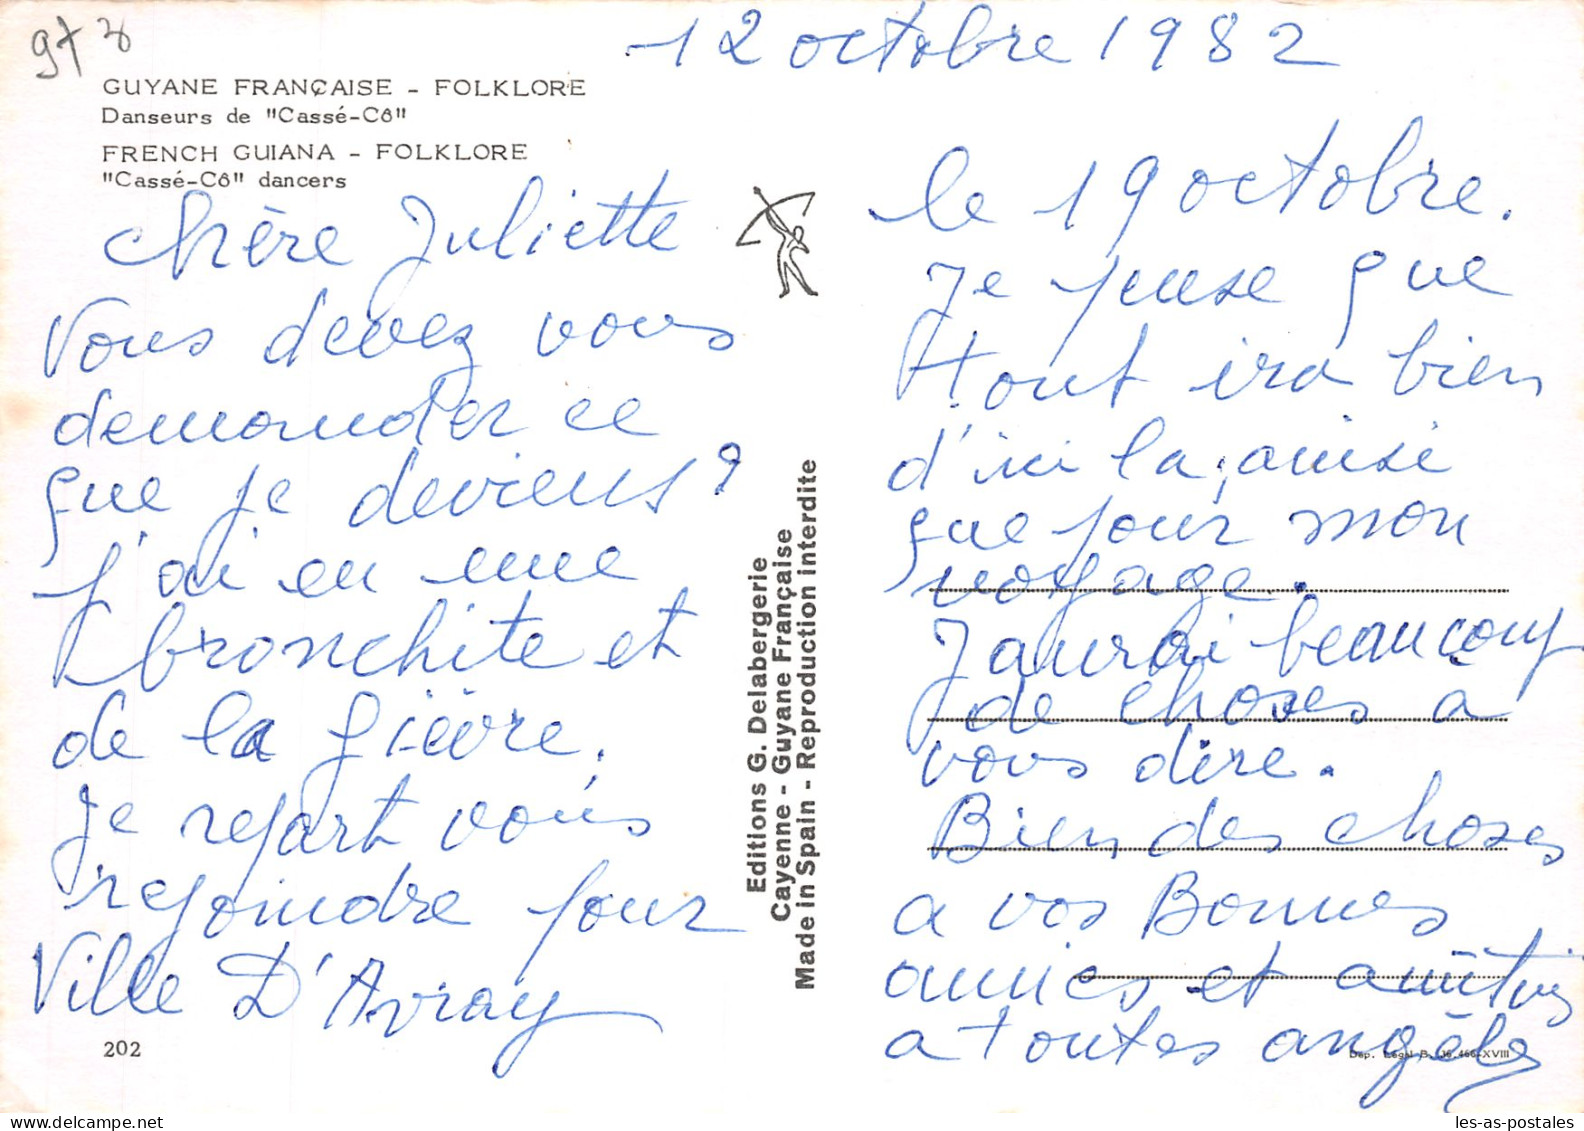 973
12 octobre 1982
GUYANE FRANÇAISE - FOLKLORE
Danseurs de "Cassé-Cô"
FRENCH GUIANA - FOLKLORE
"Cassé-Cô" dancers
Chère Juliette
Vous devez vous
demander ce
que je deviens?
j'ai eu une
bronchite et
de la fièvre.
Je repart vous
rejoindre pour
Ville D'Avray
202
Editions G. Delabergerie
Cayenne - Guyane Française
Made in Spain - Reproduction interdite
le 19 octobre.
Je pense que
tout ira bien
d'ici la, ainsi
que pour mon
voyage.
J'aurai beaucoup
de choses a
vous dire.
Bien des choses
a vos Bonnes
amies et amitiés
a toutes angèle
Dep. Legal B. 36.466-XVIII
les-as-postales